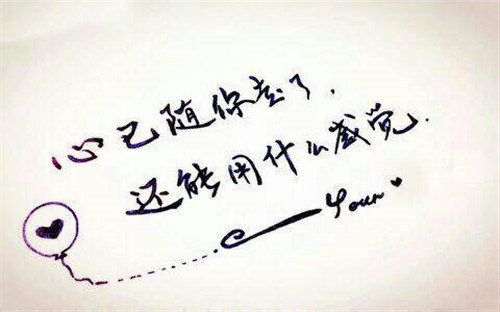 心已随你去了.
还能用什么感觉.
Your